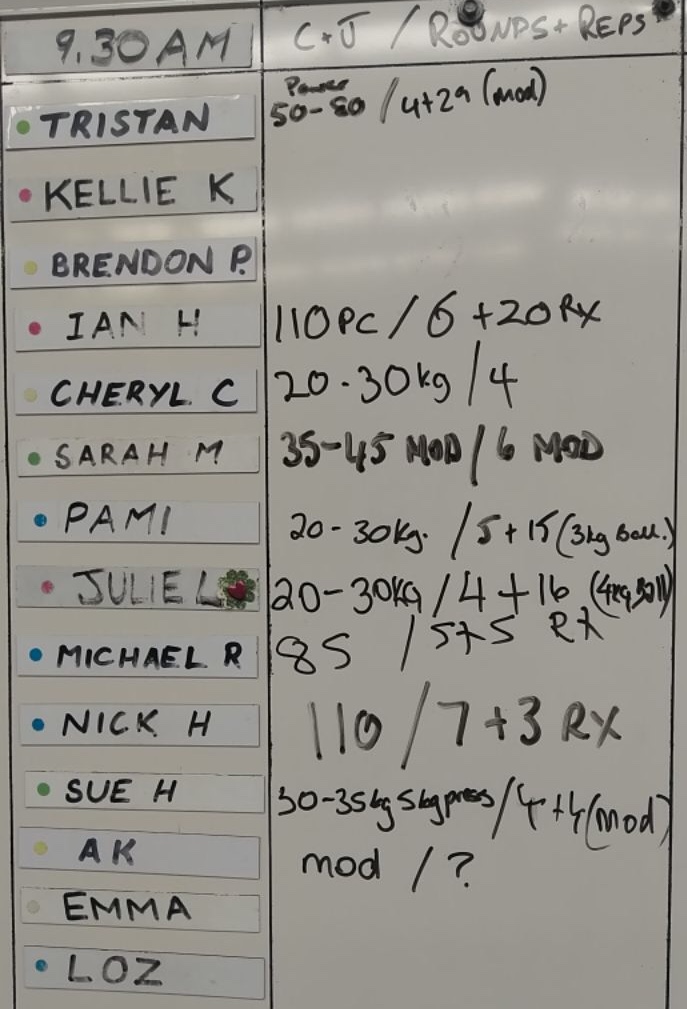 9.30AM C+J / ROUNDS+REPS
Power
TRISTAN 50-80 / 4+29 (mod)
KELLIE K
BRENDON P.
IAN H 110PC / 6 +20 RX
CHERYL C 20-30kg / 4
SARAH M 35-45 MOD / 6 MOD
PAMI 20-30kg. / 5+15 (3kg Ball.)
JULIE L 20-30KG / 4+16 (4kg Ball)
MICHAEL R 85 / 5+5 RX
NICK H 110 / 7+3 RX
SUE H 30-35kg 5kg press / 4+4 (mod)
AK mod / ?
EMMA
LOZ